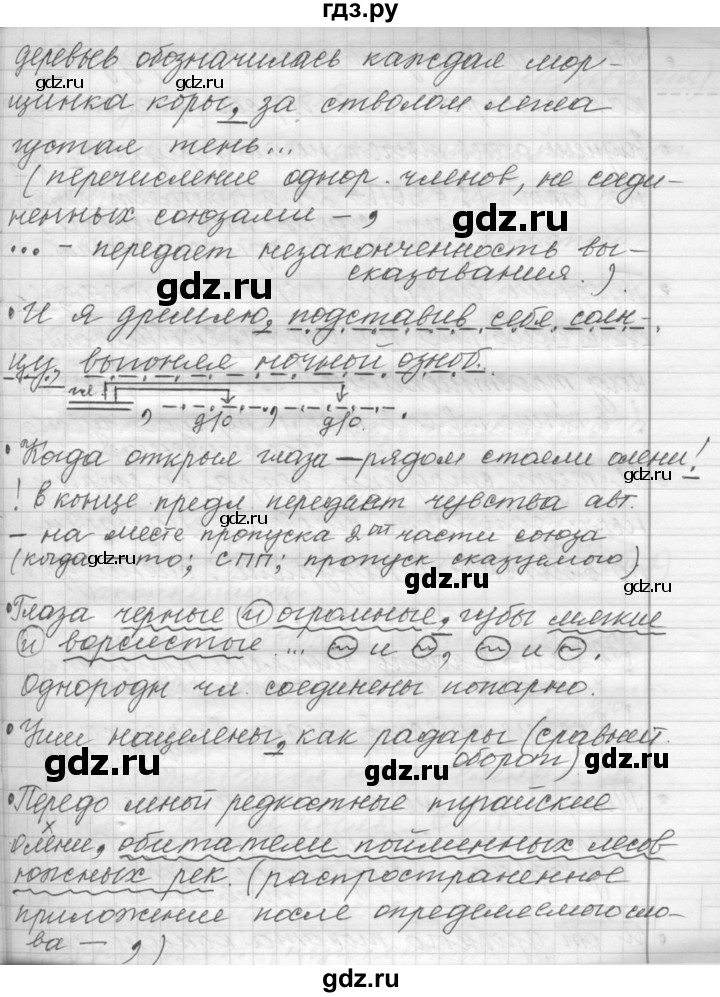 гдз.ру
деревьев обозначилась каждая мор-
щинка коры, за стволом легла
густая тень...
(перечисление однор. членов, не соеди-
ненных союзами – ,
... – передает незаконченность вы-
сказывания.)
• И я дремлю, подставив себя солн-
цу, выгоняя ночной озноб.
д/о д/о.
• Когда открыл глаза – рядом стояли олени!
! в конце предл передает чувства авт.
– на месте пропуска 2ой части союза
(когда то; СПП; пропуск сказуемого)
• Глаза черные и огромные, губы мягкие
и ворсистые ... и , и .
Однородн чл. соединены попарно.
• Уши нацелены, как радары (сравнит.
оборот)
• Передо мной редкостные тугайские
олени, обитатели пойменных лесов
южных рек. (распространенное
приложение после определяемого сло-
ва – ,)
gdz.ru